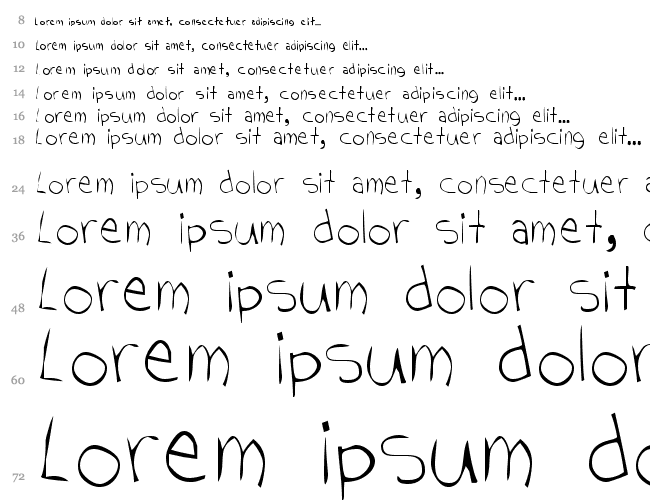 8 Lorem ipsum dolor sit amet, consectetuer adipiscing elit...
10 Lorem ipsum dolor sit amet, consectetuer adipiscing elit...
12 Lorem ipsum dolor sit amet, consectetuer adipiscing elit...
14 Lorem ipsum dolor sit amet, consectetuer adipiscing elit...
16 Lorem ipsum dolor sit amet, consectetuer adipiscing elit...
18 Lorem ipsum dolor sit amet, consectetuer adipiscing elit...
24 Lorem ipsum dolor sit amet, consectetuer a
36 Lorem ipsum dolor sit amet, c
48 Lorem ipsum dolor sit
60 Lorem ipsum dolor
72 Lorem ipsum do